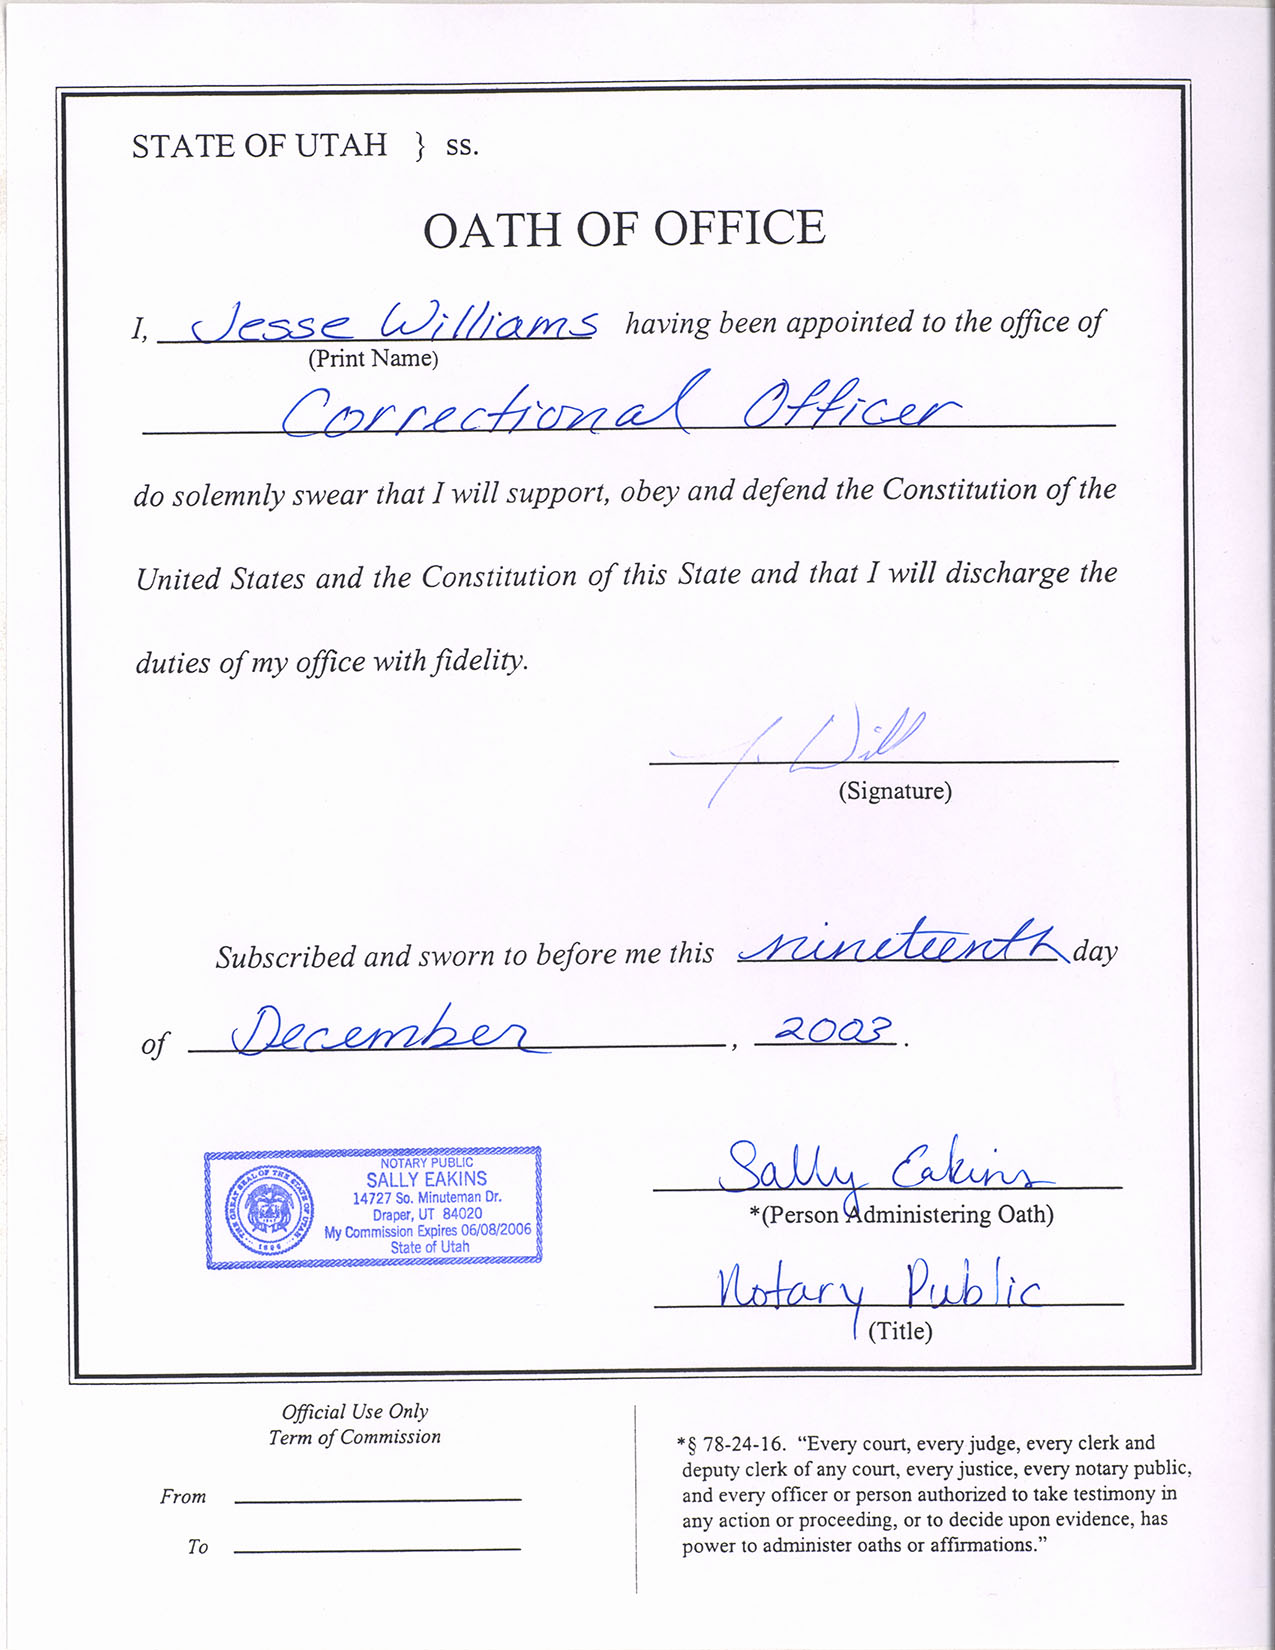 STATE OF UTAH } ss.
OATH OF OFFICE
I, Jesse Williams having been appointed to the office of
(Print Name)
Correctional Officer
do solemnly swear that I will support, obey and defend the Constitution of the
United States and the Constitution of this State and that I will discharge the
duties of my office with fidelity.
J. Will
(Signature)
Subscribed and sworn to before me this nineteenth day
of December, 2003.
THE GREAT SEAL OF THE STATE OF UTAH
1896
NOTARY PUBLIC
SALLY EAKINS
14727 So. Minuteman Dr.
Draper, UT 84020
My Commission Expires 06/08/2006
State of Utah
Sally Eakins
*(Person Administering Oath)
Notary Public
(Title)
Official Use Only
Term of Commission
From
To
*§ 78-24-16. “Every court, every judge, every clerk and
deputy clerk of any court, every justice, every notary public,
and every officer or person authorized to take testimony in
any action or proceeding, or to decide upon evidence, has
power to administer oaths or affirmations.”